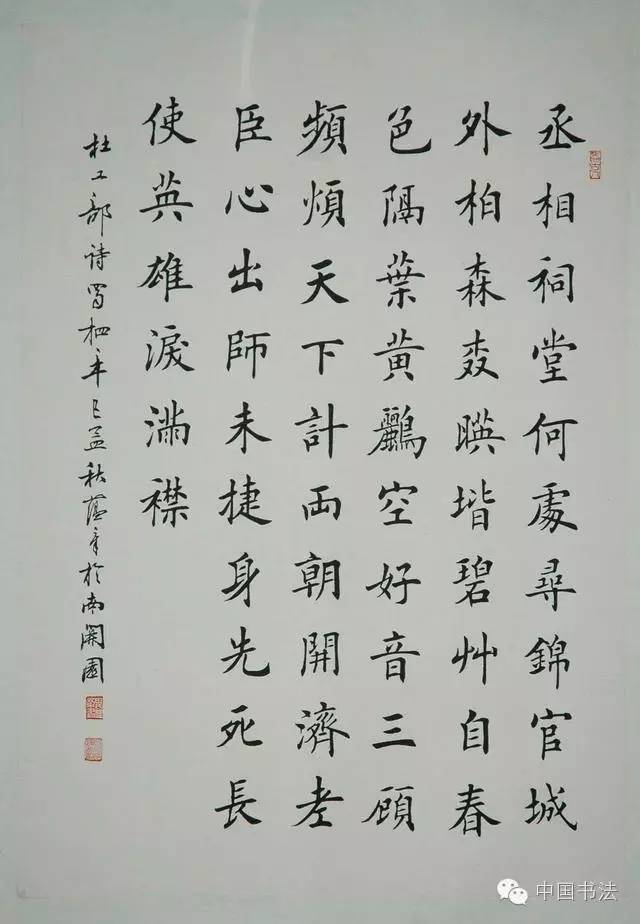 丞相祠堂何處尋錦官城
外柏森森暎堦碧艸自春
色隔葉黄鸝空好音三顧
頻煩天下計両朝開濟老
臣心出師未捷身先死長
使英雄淚滿襟
杜工部詩蜀相辛巳孟秋蓝青於南開園
中国书法